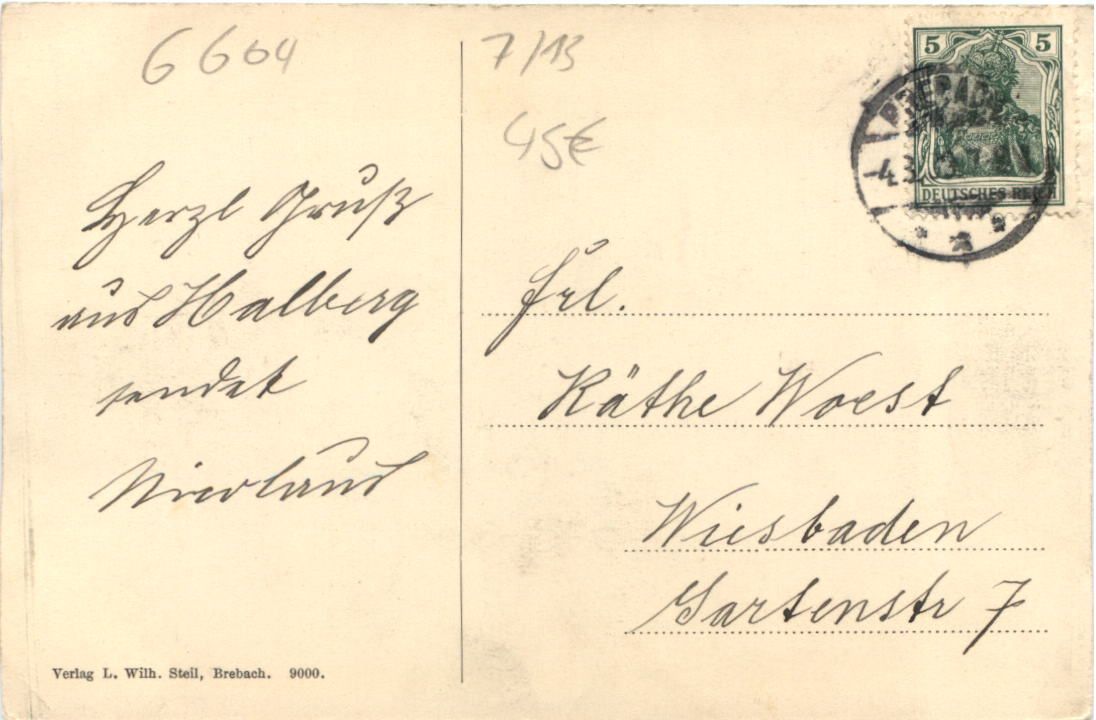 6604
7/13
45€
Herzl Gruß
aus Halberg
sendet
Nicolaus
5 5
DEUTSCHES REICH
BREBACH
Frl.
Käthe Woest
Wiesbaden
Gartenstr 7
Verlag L. Wilh. Steil, Brebach. 9000.